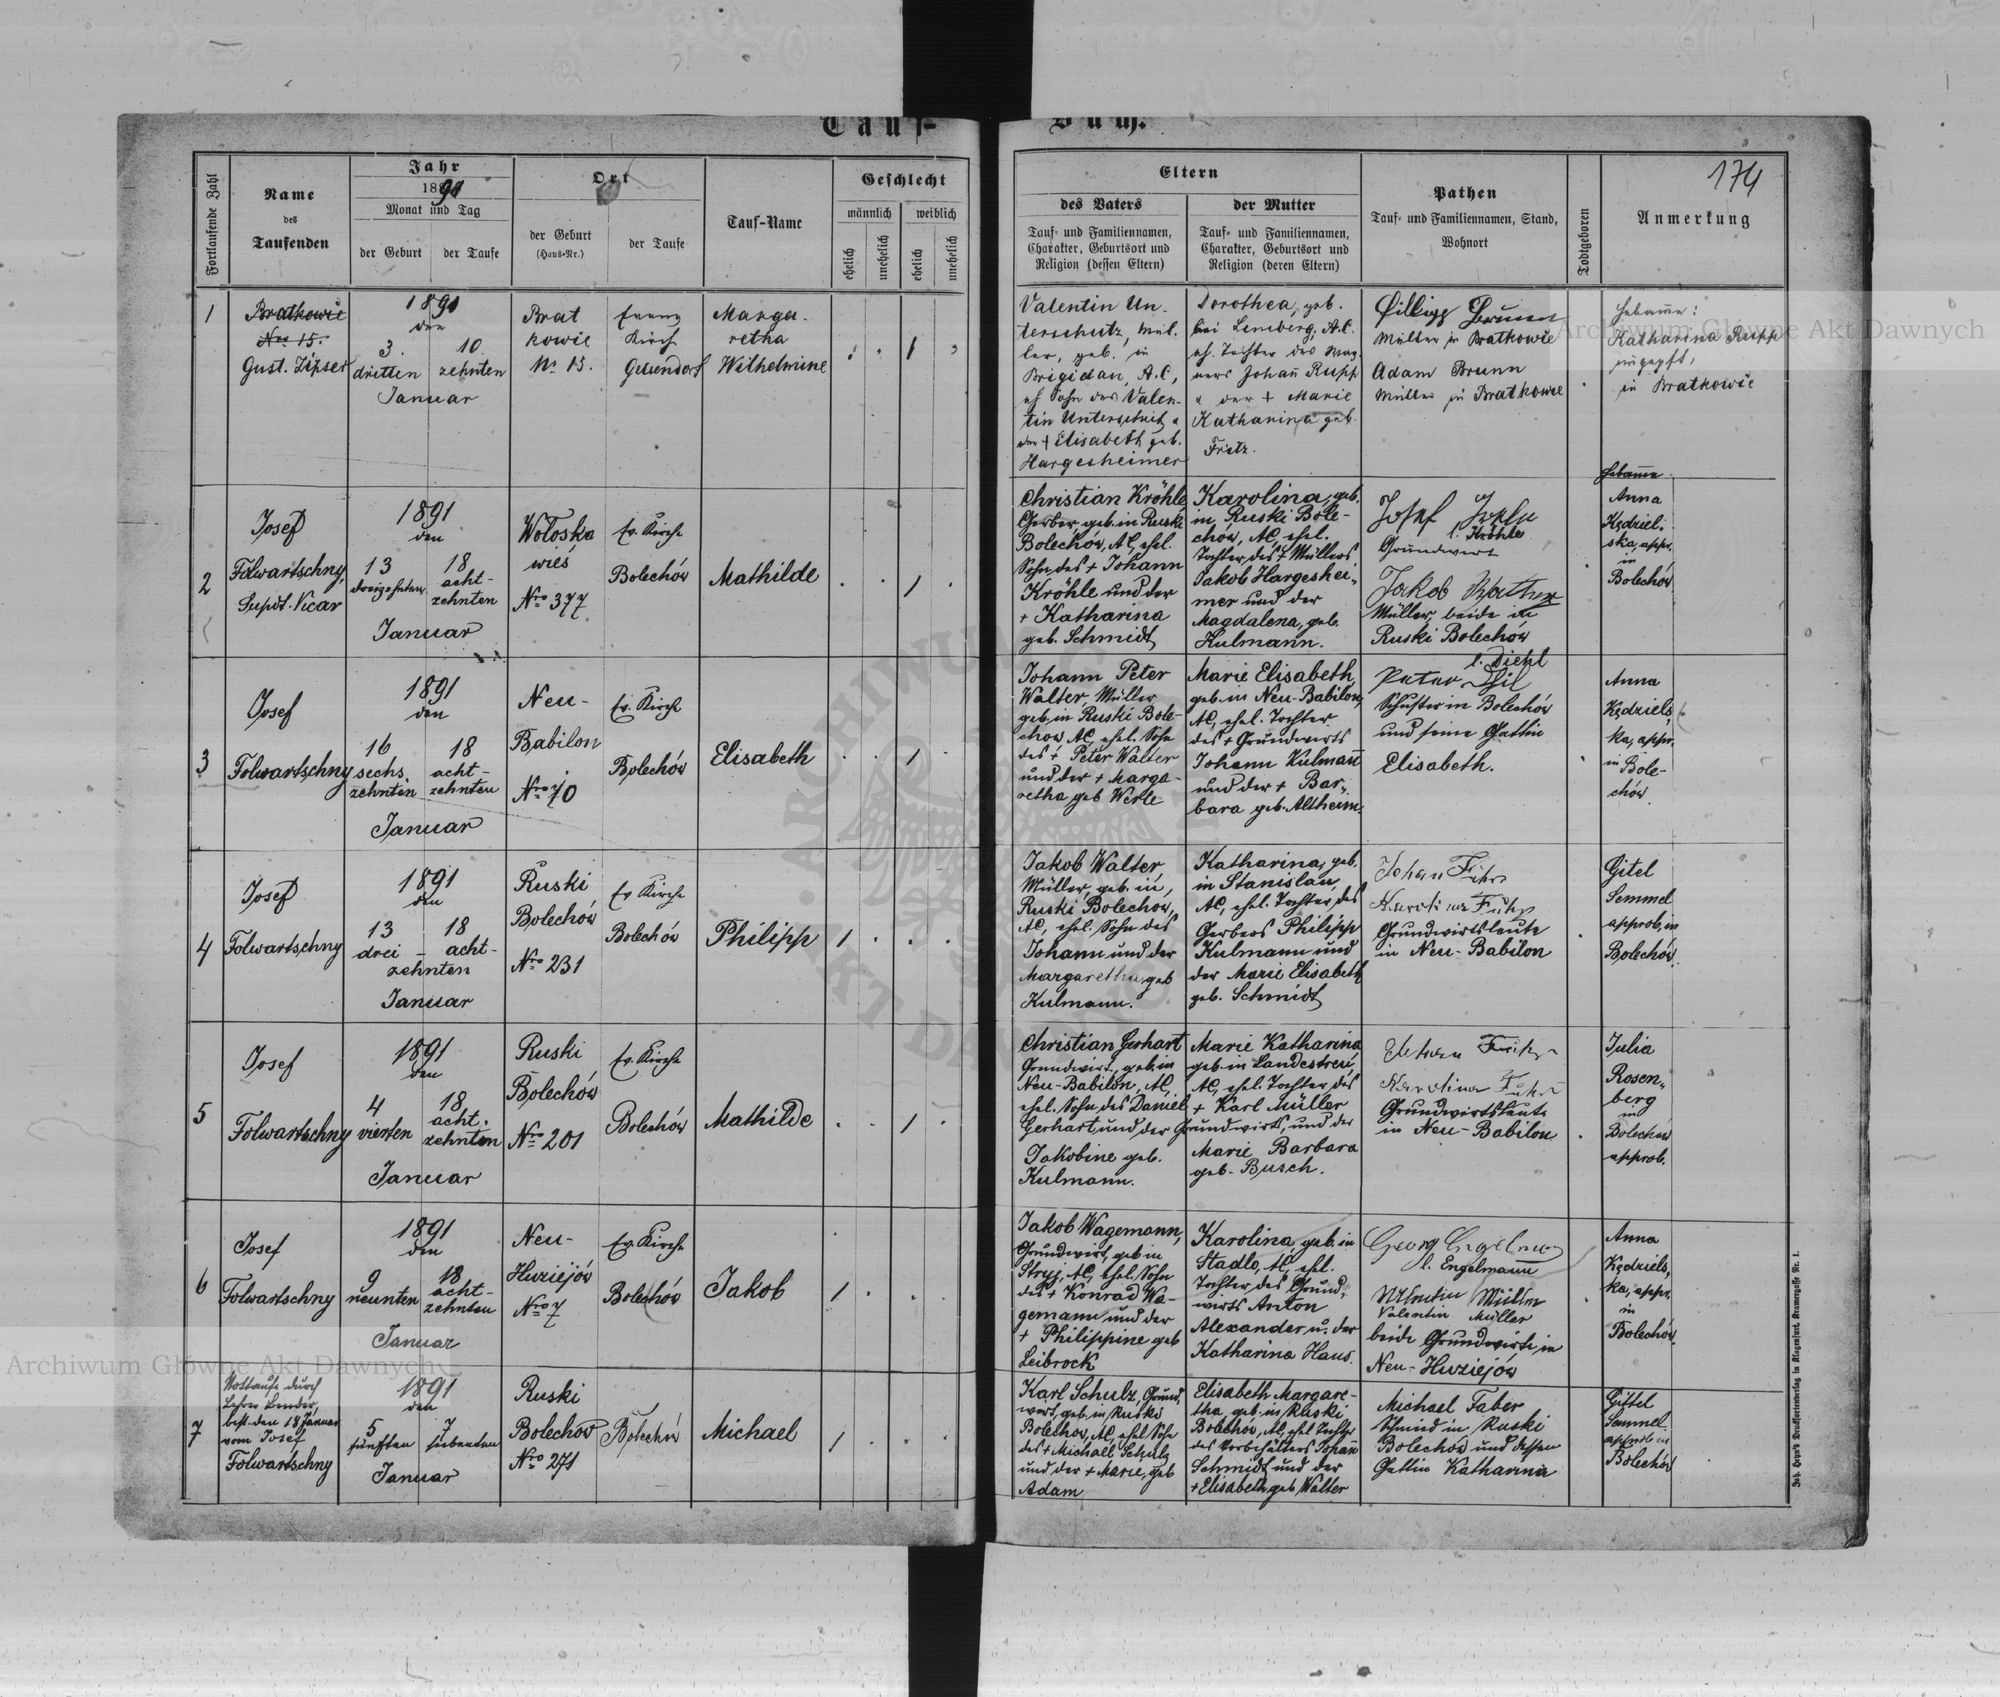 Tauf-
Buch.
174
Fortlaufende Zahl
Name
des
Taufenden
Jahr
1891
Monat und Tag
der Geburt
der Taufe
Ort
der Geburt
(Haus-Nr.)
der Taufe
Tauf-Name
Geschlecht
männlich
weiblich
ehelich
unehelich
ehelich
unehelich
Eltern
des Vaters
Tauf- und Familiennamen,
Charakter, Geburtsort und
Religion (dessen Eltern)
der Mutter
Tauf- und Familiennamen,
Charakter, Geburtsort und
Religion (deren Eltern)
Pathen
Tauf- und Familiennamen, Stand,
Wohnort
Todtgeboren
Anmerkung
1
Bratkowie
Nro 15.
Gust. Zipser
1891
den
3.
dritten
10.
zehnten
Januar
Brat
kowie
No 15.
Kirch
Gelsendorf
Marga-
retha
Wilhelmine
1
Valentin Un-
terschütz, Mül-
ler, geb. in
Brigidau, A.C.,
eh. Sohn des Valen-
tin Unterschütz u
der † Elisabeth geb.
Hargesheimer
Dorothea, geb.
bei Lemberg, A.C.
eh. Tochter des Wag-
ners Johan̄ Rupp
u der † Marie
Katharina geb.
Fritz.
Philipp Brunn
Müller in Bratkowie
Adam Brunn
Müller in Bratkowie
Hebam̄e:
Katharina Rupp
ungeprft,
in Bratkowie
2
Josef
Folwartschny,
Supdt. Vicar
1891
den
13
dreizehnten
18
acht-
zehnten
Januar
Wołoska
wieś
Nro 377
Ev. Kirche
Bolechów
Mathilde
1
Christian Kröhle
Gerber, geb. in Ruski
Bolechów, AC, ehel.
Sohn des † Johann
Kröhle und der
† Katharina
geb. Schmidt
Karolina, geb.
in Ruski Bole-
chów, AC, ehel.
Tochter des † Müllers
Jakob Hargeshei-
mer und der
Magdalena, geb.
Kulmann.
Josef
l. Kröhle
Grundwirt
Jakob Walter
Müller, beide in
Ruski Bolechów
Hebam̄e
Anna
Kędziel-
ska, appr.
in
Bolechów
3
Josef
Folwartschny
1891
den
16
sechs-
zehnten
18
acht-
zehnten
Januar
Neu-
Babilon
Nro 70
Ev. Kirche
Bolechów
Elisabeth
1
Johann Peter
Walter, Müller
geb. in Ruski Bole-
chow, AC, ehel. Sohn
des † Peter Walter
und der † Marga-
retha geb Werle
Marie Elisabeth
geb. in Neu-Babilon,
AC, ehel. Tochter
des † Grundwirts
Johann Kulman̄
und der † Bar-
bara geb. Altheim.
l. Diehl
Peter Dhil
Schuster in Bolechów
und seine Gattin
Elisabeth.
Anna
Kędziels-
ka, appr.
in Bole-
chów.
4
Josef
Folwartschny
1891
den
13
drei-
18
acht-
zehnten
Januar
Ruski
Bolechów
Nro 231
Ev Kirche
Bolechów
Philipp
1
Jakob Walter,
Müller, geb. in,
Ruski Bolechow,
AC, ehel. Sohn des
Johann und der
Margaretha geb
Kulmann.
Katharina, geb.
in Stanislau,
AC, ehel. Tochter des
Gerbers Philipp
Kulmann und
der Marie Elisabeth
geb. Schmidt
Johan Fuhr
Karolina Fuhr
Grundwirtsleute
in Neu-Babilon
Gitel
Semmel
approb. in
Bolechów.
5
Josef
Folwartschny
1891
den
4
vierten
18
acht-
zehnten
Januar
Ruski
Bolechów
Nro 201
Ev. Kirche
Bolechów
Mathilde
1
Christian Gerhart
Grundwirt, geb. in
Neu-Babilon, AC,
ehel. Sohn des Daniel
Gerhart und der
Jakobine geb.
Kulmann.
Marie Katharina
geb. in Landestreu,
AC, ehel. Tochter des
† Karl Müller
Grundwirts, und der
Marie Barbara
geb. Busch.
Johan Fuhr
Karolina Fuhr
Grundwirtsleute
in Neu-Babilon
Julia
Rosen-
berg
in
Bolechów
approb.
6
Josef
Folwartschny
1891
den
9
neunten
18
acht-
zehnten
Januar
Neu-
Hoziejów
Nro 7
Ev. Kirche
Bolechów
Jakob
1
Jakob Wagemann,
Grundwirt, geb in
Stryj, AC, ehel. Sohn
des † Konrad Wa-
gemann und der
† Philippine geb
Leibrock
Karolina geb. in
Stadlo, AC, ehel.
Tochter des Grund-
wirts Anton
Alexander u. der
Katharina Haus.
Georg Engelman
l. Engelman̄
Valentin Müller
Valentin Müller
beide Grundwirte in
Neu-Hoziejów
Anna
Kędziels-
ka, appr.
in
Bolechów.
7
Nottaufe durch
Lehrer Bender,
best. den 18 Januar
vom Josef
Folwartschny
1891
den
5
fünften
7
siebenten
Januar
Ruski
Bolechów
Nro 271
Bolechów
Michael
1
Karl Schulz, Grund-
wirt, geb. in Ruski
Bolechow, AC, ehel Sohn
des † Michael Schulz
und der † Marie, geb
Adam
Elisabeth Margare-
tha geb. in Ruski
Bolechów, AC, ehel Tochter
des Vorbehälters Johan
Schmidt und der
† Elisabeth geb Walter
Michael Faber
Schmied in Ruski
Bolechów und dessen
Gattin Katharina
Gittel
Semmel
approb in
Bolechów
Joh. Heyn's Drucksortenverlag in Klagenfurt, Kramergasse Nr. 1.
Archiwum Główne Akt Dawnych
Archiwum Główne Akt Dawnych